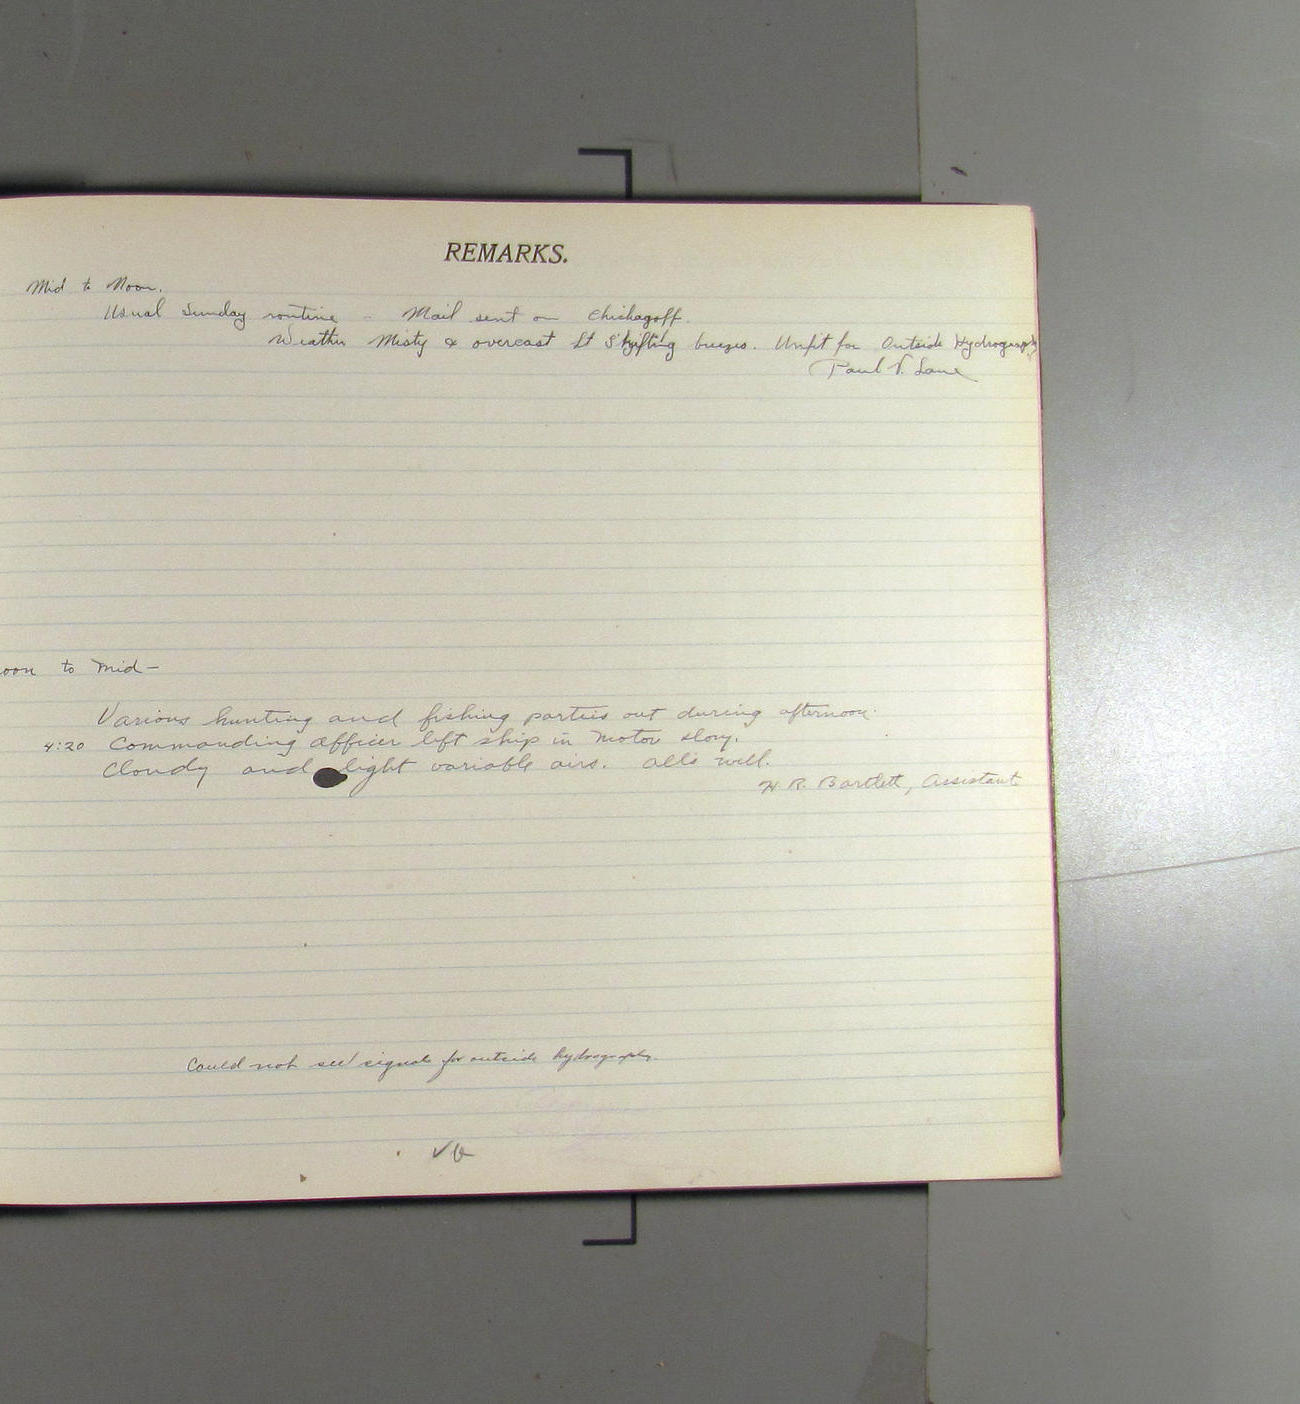 REMARKS.
Mid to Noon.
Usual Sunday routine - Mail sent on Chichagoff.
Weather Misty & overcast Lt Shifting breezes. Unfit for Outside Hydrography
Paul V. Lane
oon to Mid—
Various hunting and fishing parties out during afternoon.
4:20 Commanding Officer left ship in Motor
Cloudy and light variable airs. alls well.
H R. Bartlett, Assistant
Could not see signals for outside hydrography.